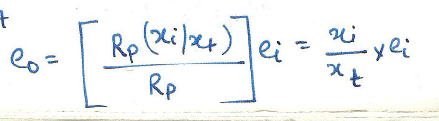 e₀ = [ Rp (xi/xt) / Rp ] ei = xi / xt × ei